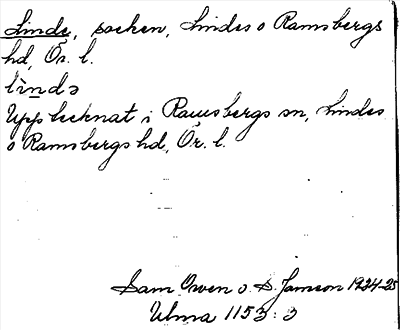 Linde, socken, Lindes o Ramsbergs
hd, Ör. l.
lìndə
Upptecknat i Ramsbergs sn, Lindes
o Ramsbergs hd, Ör. l.
Sam Owen o. S. Janson 1924-25
Ulma 1153:3